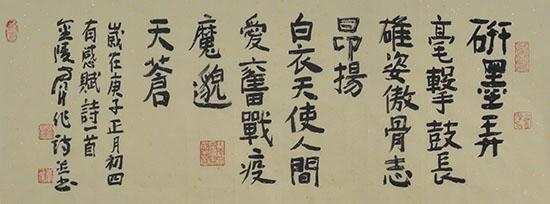 研墨弄
毫擊鼓長
雄姿傲骨志
昂揚
白衣天使人間
愛奮戰疫
魔邈
天蒼
歲在庚子正月初四
有感賦詩一首
金陵
作詩並書